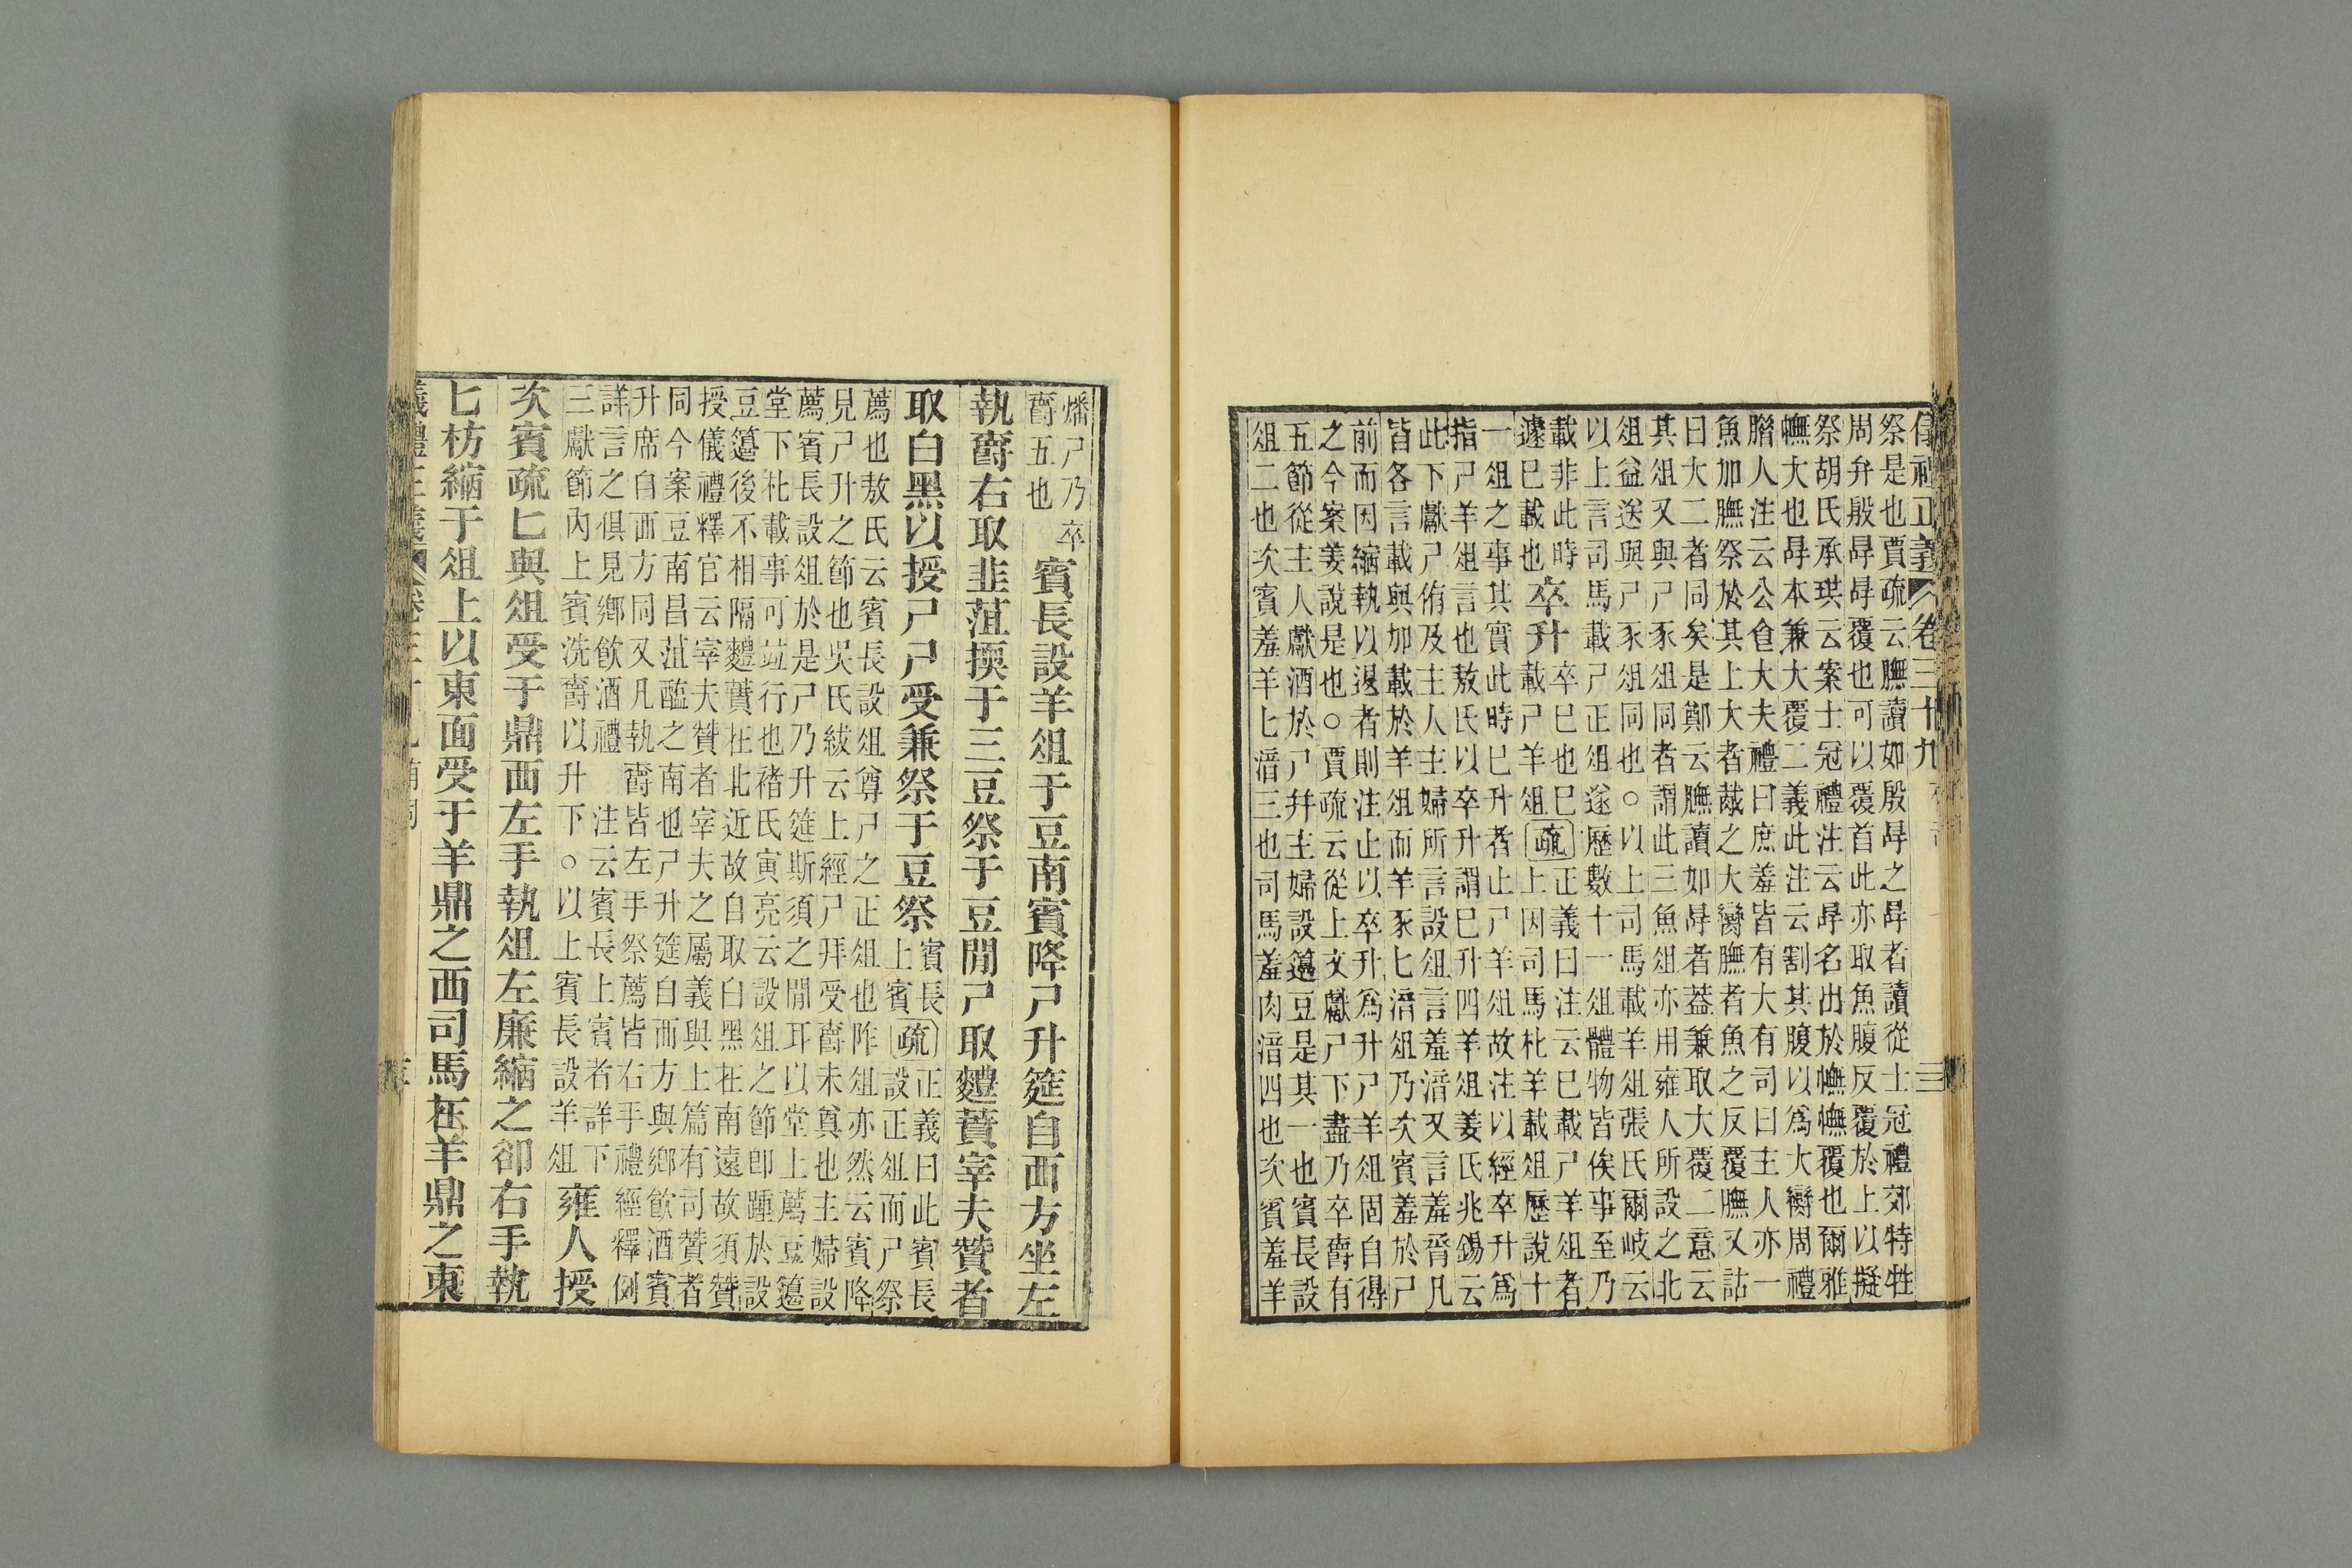 祭是也賈疏云膴讀如殷冔之冔者讀從士冠禮郊特牲
周弁殷冔冔覆也可以覆首此亦取魚腹反覆於上以擬
祭胡氏承珙云案士冠禮注云冔名出於幠幠覆也爾雅
幠大也冔本兼大覆二義此注云割其腹以爲大臠周禮
腊人注云公食大夫禮曰庶羞皆有大有司曰主人亦一
魚加膴祭於其上大者胾之大臠膴者魚之反覆膴又詁
曰大二者同矣是鄭云膴讀如冔者蓋兼取大覆二意云
其俎又與尸豕俎同者謂此三魚俎亦用雍人所設之北
俎益送與尸豕俎同也○以上司馬載羊俎張氏爾岐云
以上言司馬載尸正俎遂歷數十一俎體物皆俟事至乃
載非此時
遽巳載也
卒升
卒巳也巳
載尸羊俎
疏
正義曰注云巳載尸羊俎者
上因司馬朼羊載俎歷說十
一俎之事其實此時巳升者止尸羊俎故注以經卒升爲
指尸羊俎言也敖氏以卒升謂巳升四羊俎姜氏兆錫云
此下獻尸侑及主人主婦所言設俎言羞湆又言羞胥凡
皆各言載與加載於羊俎而羊豕匕湆俎乃次賓羞於尸
前而因縮執以退者則注止以卒升爲升尸羊俎固自得
之今案姜說是也○賈疏云從上文獻尸下盡乃卒爵有
五節從主人獻酒於尸并主婦設籩豆是其一也賓長設
俎二也次賓羞羊匕湆三也司馬羞肉湆四也次賓羞羊
儀禮正義 卷三十九
三
燔尸乃卒
爵五也
賓長設羊俎于豆南賓降尸升筵自西方坐左
執爵右取韭菹擩于三豆祭于豆閒尸取麷蕡宰夫贊者
取白黑以授尸尸受兼祭于豆祭
賓長
上賓
疏
正義曰此賓長
設正俎而尸祭
薦也敖氏云賓長設俎尊尸之正俎也阼俎亦然云賓降
見尸升之節也吳氏紱云上經尸拜受爵未奠也主婦設
薦賓長設俎於是尸乃升筵斯須之閒耳以堂上薦豆籩
堂下朼載事可竝行也褚氏寅亮云設俎之節卽踵於設
豆籩後不相隔麷蕡在北近故自取白黑在南遠故須贊
授儀禮釋官云宰夫贊者宰夫之屬義與上篇有司贊者
同今案豆南昌菹醢之南也尸升筵自西方與鄉飲酒賓
升席自西方同又凡執爵皆左手祭薦皆右手禮經釋例
詳言之俱見鄉飲酒禮 注云賓長上賓者詳下
三獻節內上賓洗爵以升下○以上賓長設羊俎
雍人授
次賓疏匕與俎受于鼎西左手執俎左廉縮之卻右手執
匕枋縮于俎上以東面受于羊鼎之西司馬在羊鼎之東